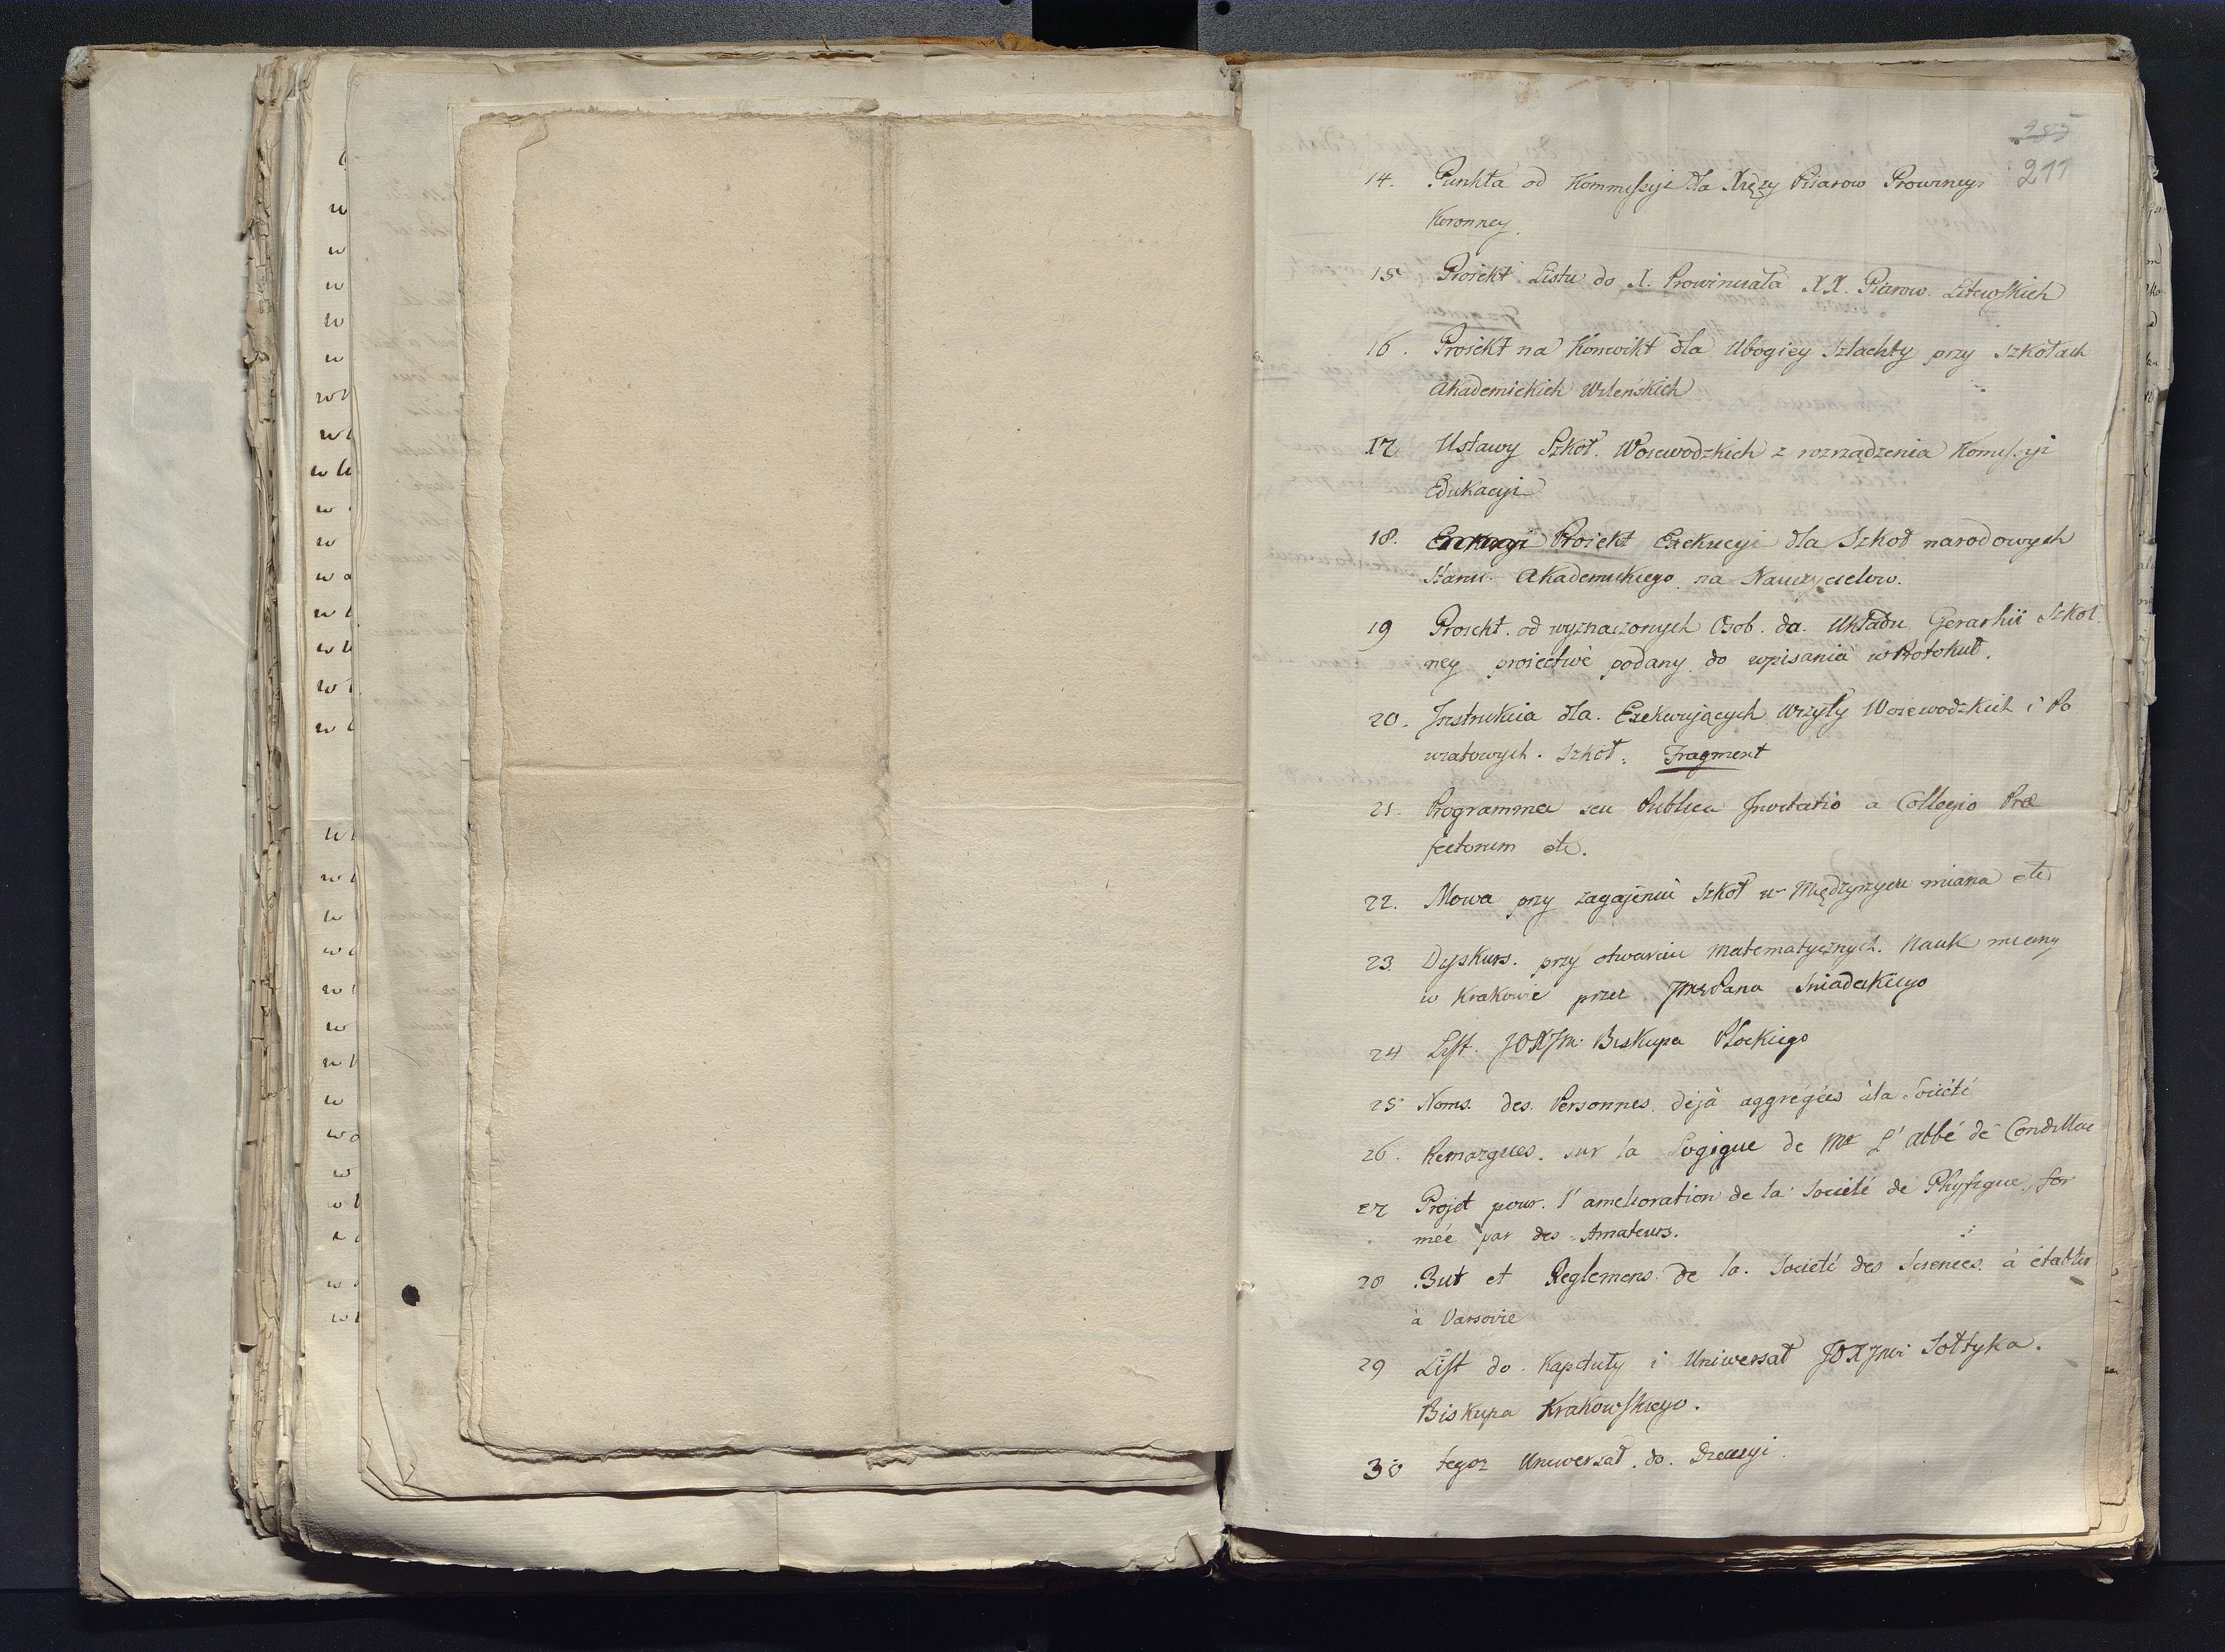 211
14. Punkta od Kommissyi dla Xięży Piiarow Prowincyi
Koronney.
15 Proiekt Listu do X. Prowincała XX. Piiarow Litewskich
16. Proiekt na Konwikt dla Ubogiey Szlachty przy Szkołach
Akademickich Wileńskich
17 Ustawy Szkoł Woiewodzkich z rozrządzenia Komissyi
Edukacyi
18. Proiekt Exekucyi dla Szkoł narodowych
Stanu Akademickiego na Nauczycielow.
19 Proiekt. od wyznaczonych Osob. do. Układu Gerarhii Szkol
ney proiectwe podany do wpisania w Protokuł.
20. Instrukcia dla. Exekwujących Wizyty Woiewodzkich i Po
wiatowych. Szkoł. Fragment
21. Programma seu Publica Invitatio a Collegio Præ
fectorum etc.
22. Mowa przy zagajeniu Szkoł w Międzyrzycu miana etc
23. Dyskurs. przy otwarciu Matematycznych. Nauk miany
w Krakowie przez JmćPana Sniadeckiego
24 List. JOXJm. Biskupa Płockiego
25 Noms. des. Personnes déjà aggrégées à la Société
26. Remarques. sur la Logique de Mr L'abbé de Condillac
27 Projet pour. l'amelioration de la Société de Physique, for
mée par des Amateurs.
28 But et Reglemens de la. Societé des Sciences. à établir
à Varsovie
29 List do. Kapituły i Uniwersał JOXJmci Sołtyka.
Biskupa Krakowskiego.
30 tegoz Uniwersał. do. Diecezyi.